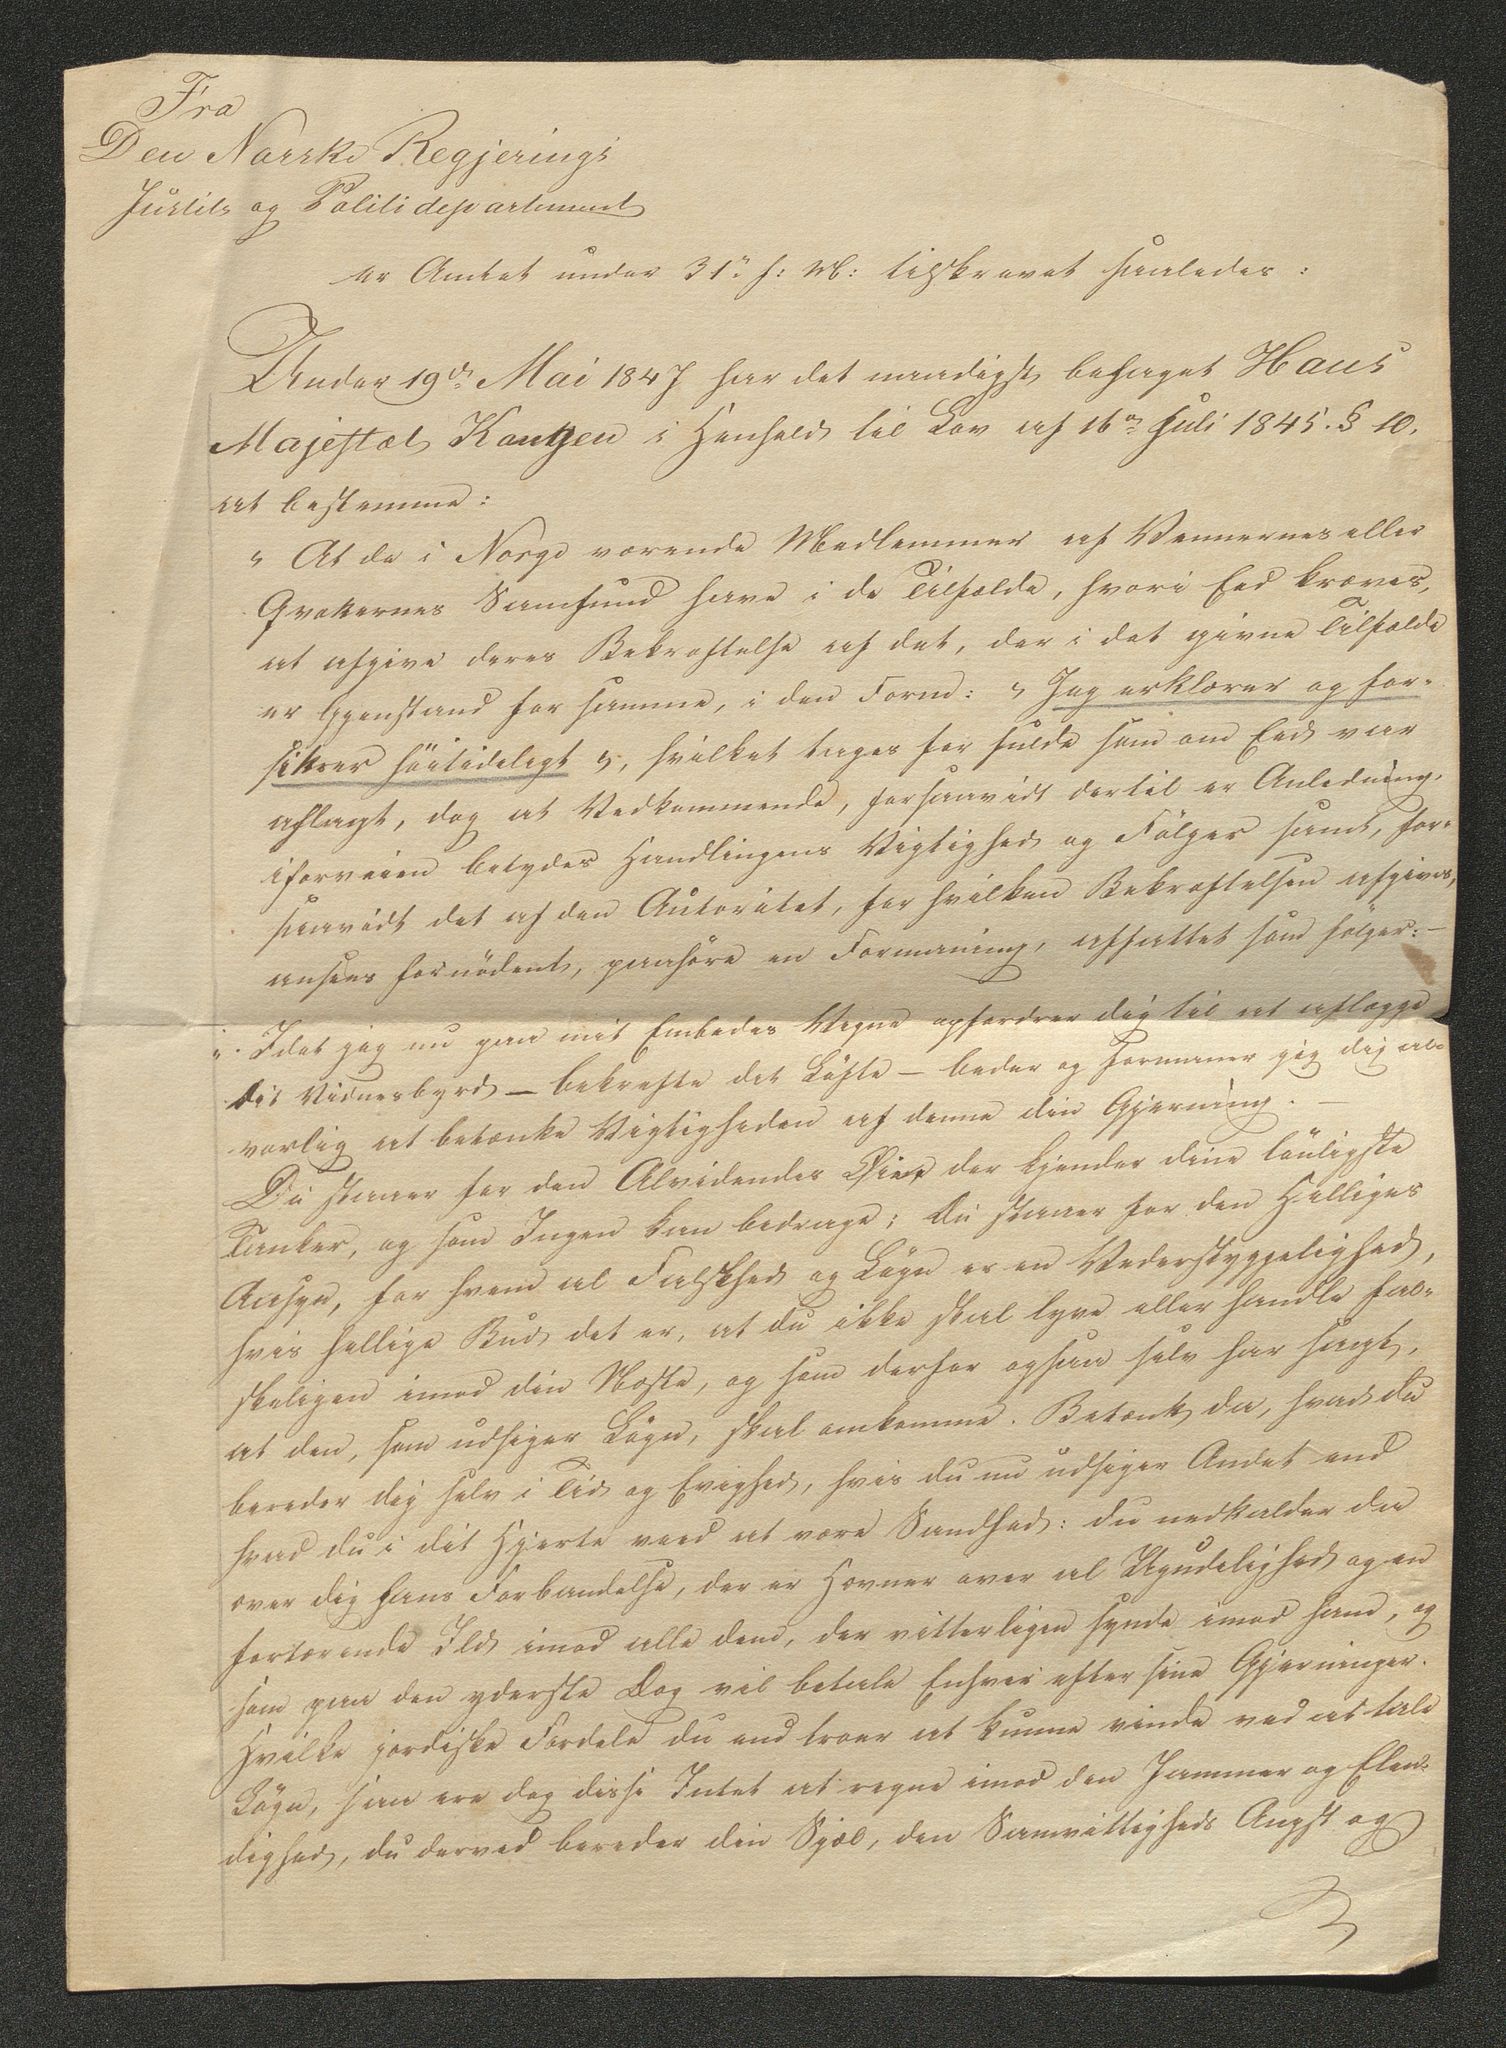 Fra
Den Norske Regjerings
Justits og Politidepartement
er Amtet under 31te f: M: tilskrevet saaledes:
Under 19de Mai 1847 har det naadigst behaget Hans
Majestæt Kongen i Henhold til Lov af 16de Juli 1845. § 10,
at bestemme:
"At de i Norge værende Medlemmer af Vennernes eller
Qvækernes Samfund have i de Tilfælde, hvori Eed kræves,
at afgive deres Bekræftelse af det, der i det givne Tilfælde
er Gjenstand for samme, i den Form: "Jeg erklærer og for-
sikrer höitideligt", hvilket tages for fulde som om Eed var
aflagt, dog at Vedkommende, forsaavidt dertil er Anledning,
iforveien betydes Handlingens Vigtighed og Fölger samt, for-
saavidt det af den Autoritet, for hvilken Bekræftelsen afgives,
ansees fornödent, paahöre en Formaning, affattet som fölger:—
". Idet jeg nu paa mit Embedes Vegne opfordrer dig til at aflægge
dit Vidnesbyrd — bekræfte det Löfte — beder og formaner jeg dig al-
vorlig at betænke Vigtigheden af denne din Gjerning. —
Du staaer for den Alvidendes Øie, der kjender dine lönligste
Tanker, og som Ingen kan bedrage; Du staaer for den Helliges
Aasyn, for hvem al Falskhed og Lögn er en Vederstyggelighed,
hvis hellige Bud det er, at du ikke skal lyve eller handle fal-
skeligen imod din Næste, og som derfor ogsaa selv har sagt,
at den, som udsiger Lögn, skal omkomme. Betænk da, hvad du
bereder dig selv i Tid og Evighed, hvis du nu udsiger Andet end
hvad du i dit Hjerte veed at være Sandhed: du nedkalder da
over dig hans Forbandelse, der er Hævner over al Ugudelighed og en
fortærende Ild imod alle dem, der vitterligen synde imod ham, og
som paa den yderste Dag vil betale Enhver efter sine Gjerninger.
Hvilke jordiske Fordele du end troer at kunne vinde ved at tale
Lögn, saa ere dog disse Intet at regne imod den Jammer og Elen-
dighed, du derved bereder din Sjæl, den Samvittigheds Angst og